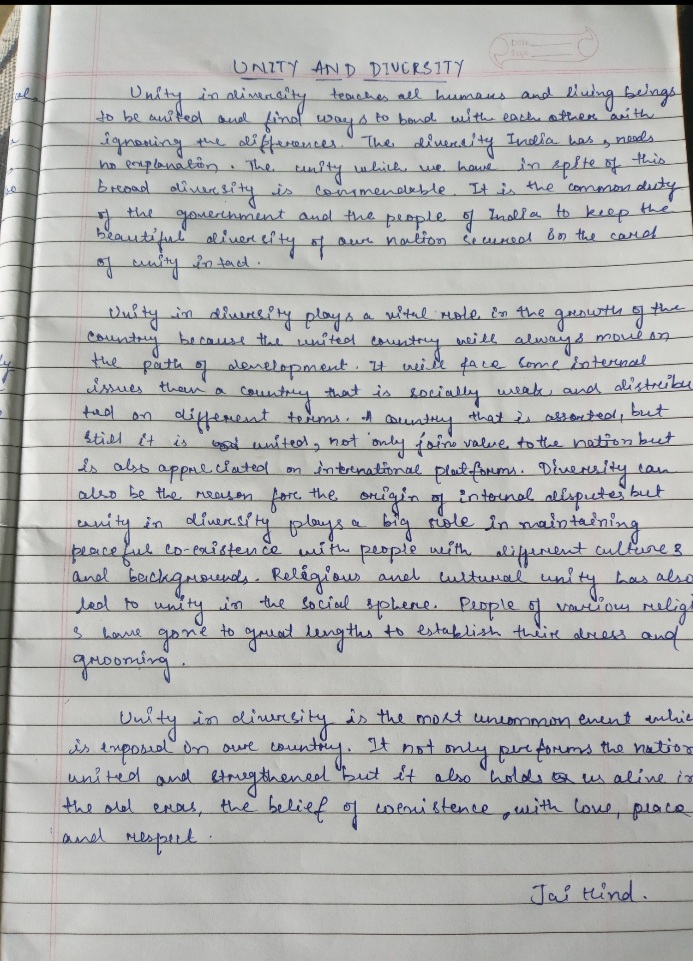 UNITY AND DIVERSITY
Unity in diversity teaches all humans and living beings
to be united and find ways to bond with each other with
ignoring the differences. The diversity India has, needs
no explanation. The unity which we have in spite of this
broad diversity is commendable. It is the common duty
of the government and the people of India to keep the
beautiful diversity of our nation secured on the card
of unity intact.
Unity in diversity plays a vital role in the growth of the
country because the united country will always move on
the path of development. It will face some internal
issues than a country that is socially weak, and distribu
ted on different terms. A country that is assorted, but
still it is united, not only joins value to the nation but
is also appreciated on international platforms. Diversity can
also be the reason fore the origin of internal disputes but
unity in diversity plays a big role in maintaining
peaceful co-existence with people with different cultures
and backgrounds. Religious and cultural unity has also
led to unity in the social sphere. People of various religi
s have gone to great lengths to establish their dress and
grooming.
Unity in diversity is the most uncommon event whic
is exposed in our country. It not only performs the nation
united and strugthened but it also holds us alive in
the old eras, the belief of coexistence, with love, peace
and respect.
Jai Hind.